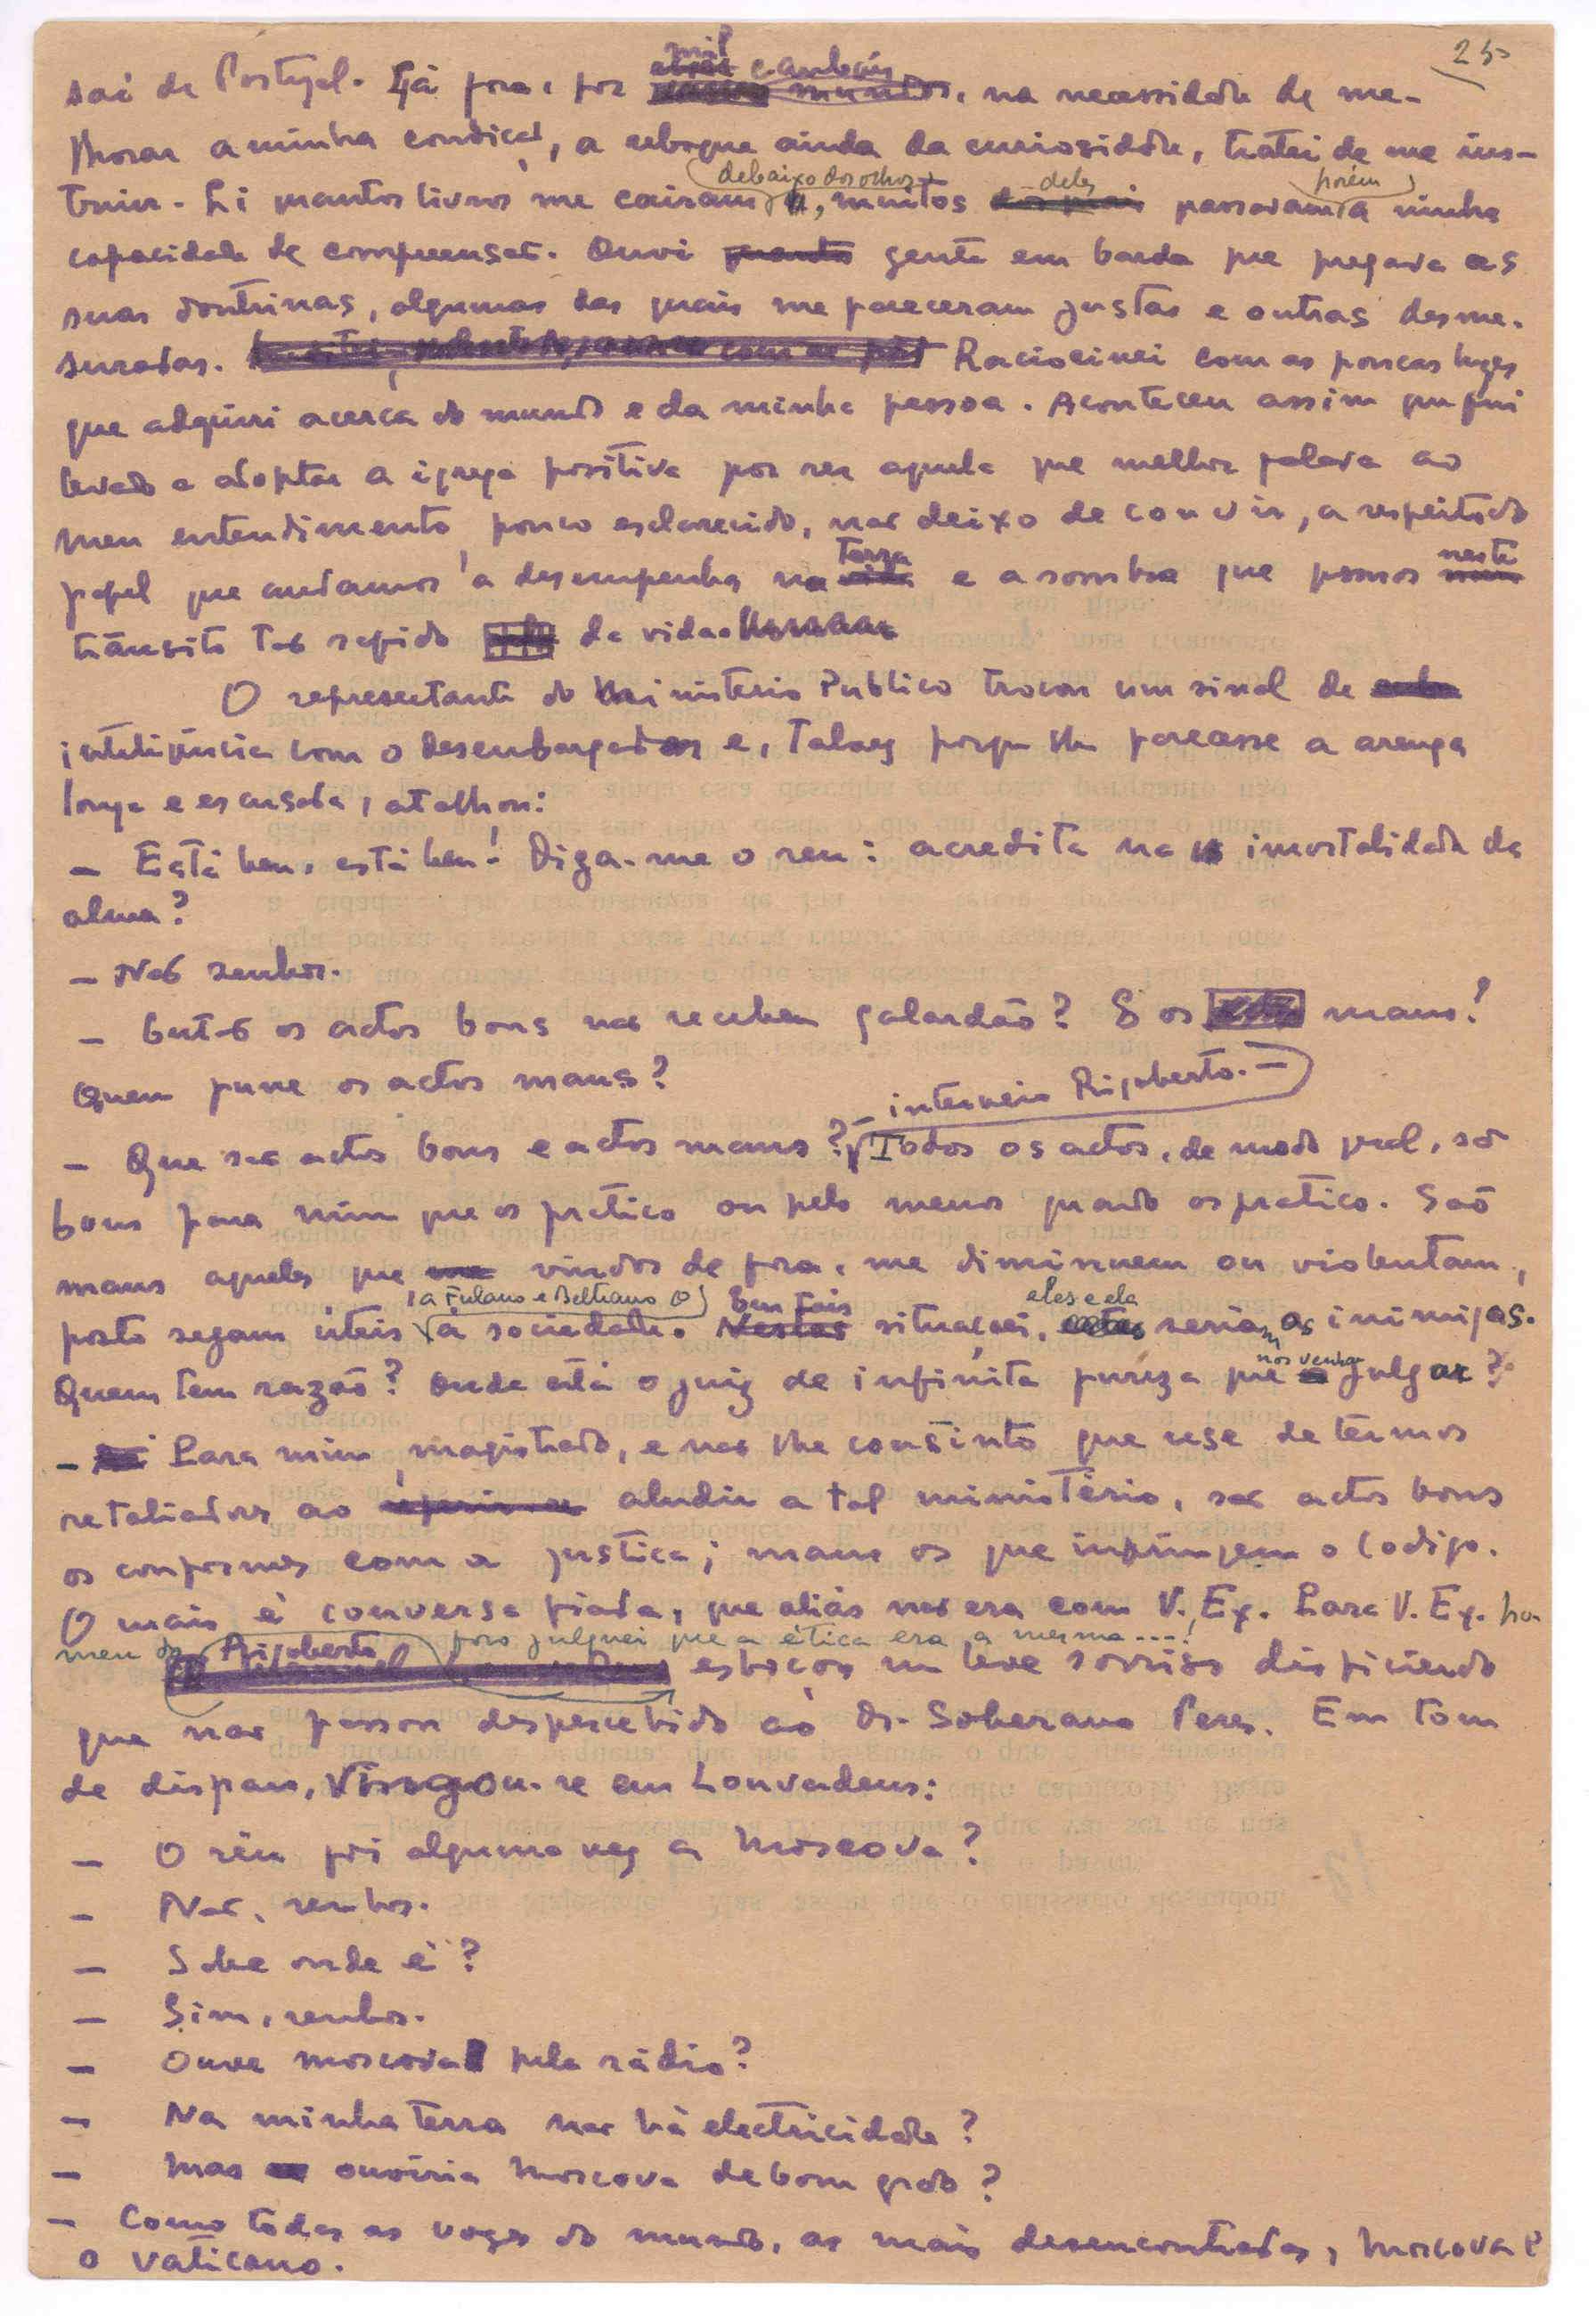 25
saí de Portugal. Lá fora, por mil cambaús, na necessidade de me-
lhorar a minha condição, a reboque ainda da curiosidade, tratei de me ins-
truir. Li quantos livros me cairam debaixo dos olhos, muitos deles passavam porém a minha
capacidade de compreensão. Ouvi gente em barda que pregava as
suas doutrinas, algumas das quais me pareceram justas e outras desme-
suradas. Raciocinei com as poucas luzes
que adquiri acerca do mundo e da minha pessoa. Aconteceu assim que fui
levado a adoptar a igreja positiva por ser aquela que melhor falava ao
meu entendimento, pouco esclarecido, não deixo de convir, a respeito do
papel que andamos a desempenhar na Terra e a sombra que somos neste
trânsito tão rápido da vida.
O representante do Ministério Publico trocou um sinal de
inteligência com o desembargador e, talvez porque lhe parecesse a arenga
longa e escusada, atalhou:
— Está bem, está bem! Diga-me o reu: acredita na imortalidade da
alma?
— Não senhor.
— Então os actos bons não recebem galardão? E os maus?
Quem pune os actos maus?
— Que são actos bons e actos maus? — interveio Rigoberto. — Todos os actos, de modo geral, são
bons para mim que os pratico ou pelo menos quando os pratico. São
maus aqueles que vindos de fora, me diminuem ou violentam,
posto sejam úteis a Fulano e Beltrano e à sociedade. Em tais situações, eles e ela seriam os inimigos.
Quem tem razão? Onde está o juiz de infinita pureza que nos venha julgar?
— Para mim, magistrado, e não lhe consinto que use de termos
retaliadores ao aludir a tal ministério, são actos bons
os conformes com a justiça; maus os que infringem o Codigo.
O mais é conversa fiada, que aliás não era com V. Ex. Para V. Ex. ho-
mem do foro julguei que a ética era a mesma....!
Rigoberto esboçou um leve sorriso displicente
que não passou despercebido ao Dr. Soberano Peres. Em tom
de dispau, vingou-se em Louvadeus:
— O réu foi alguma vez a Moscova?
— Não, senhor.
— Sabe onde é?
— Sim, senhor.
— Ouve Moscova pela rádio?
— Na minha terra não há electricidade?
— Mas ouviria Moscova de bom grado?
— Como todas as vozes do mundo, as mais desencontradas, Moscova e
o Vaticano.